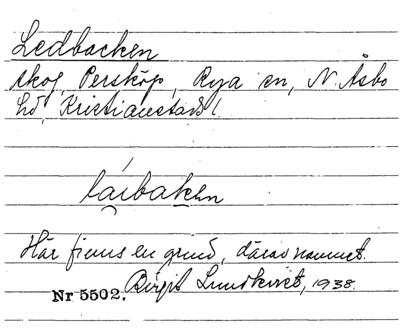 Ledbacken
skog, Perstorp, Rya sn, N. Åsbo
hd, Kristianstads l.
Här finns en grind, därav namnet.
Birgit Lundkvist, 1938.
Nr 5502.